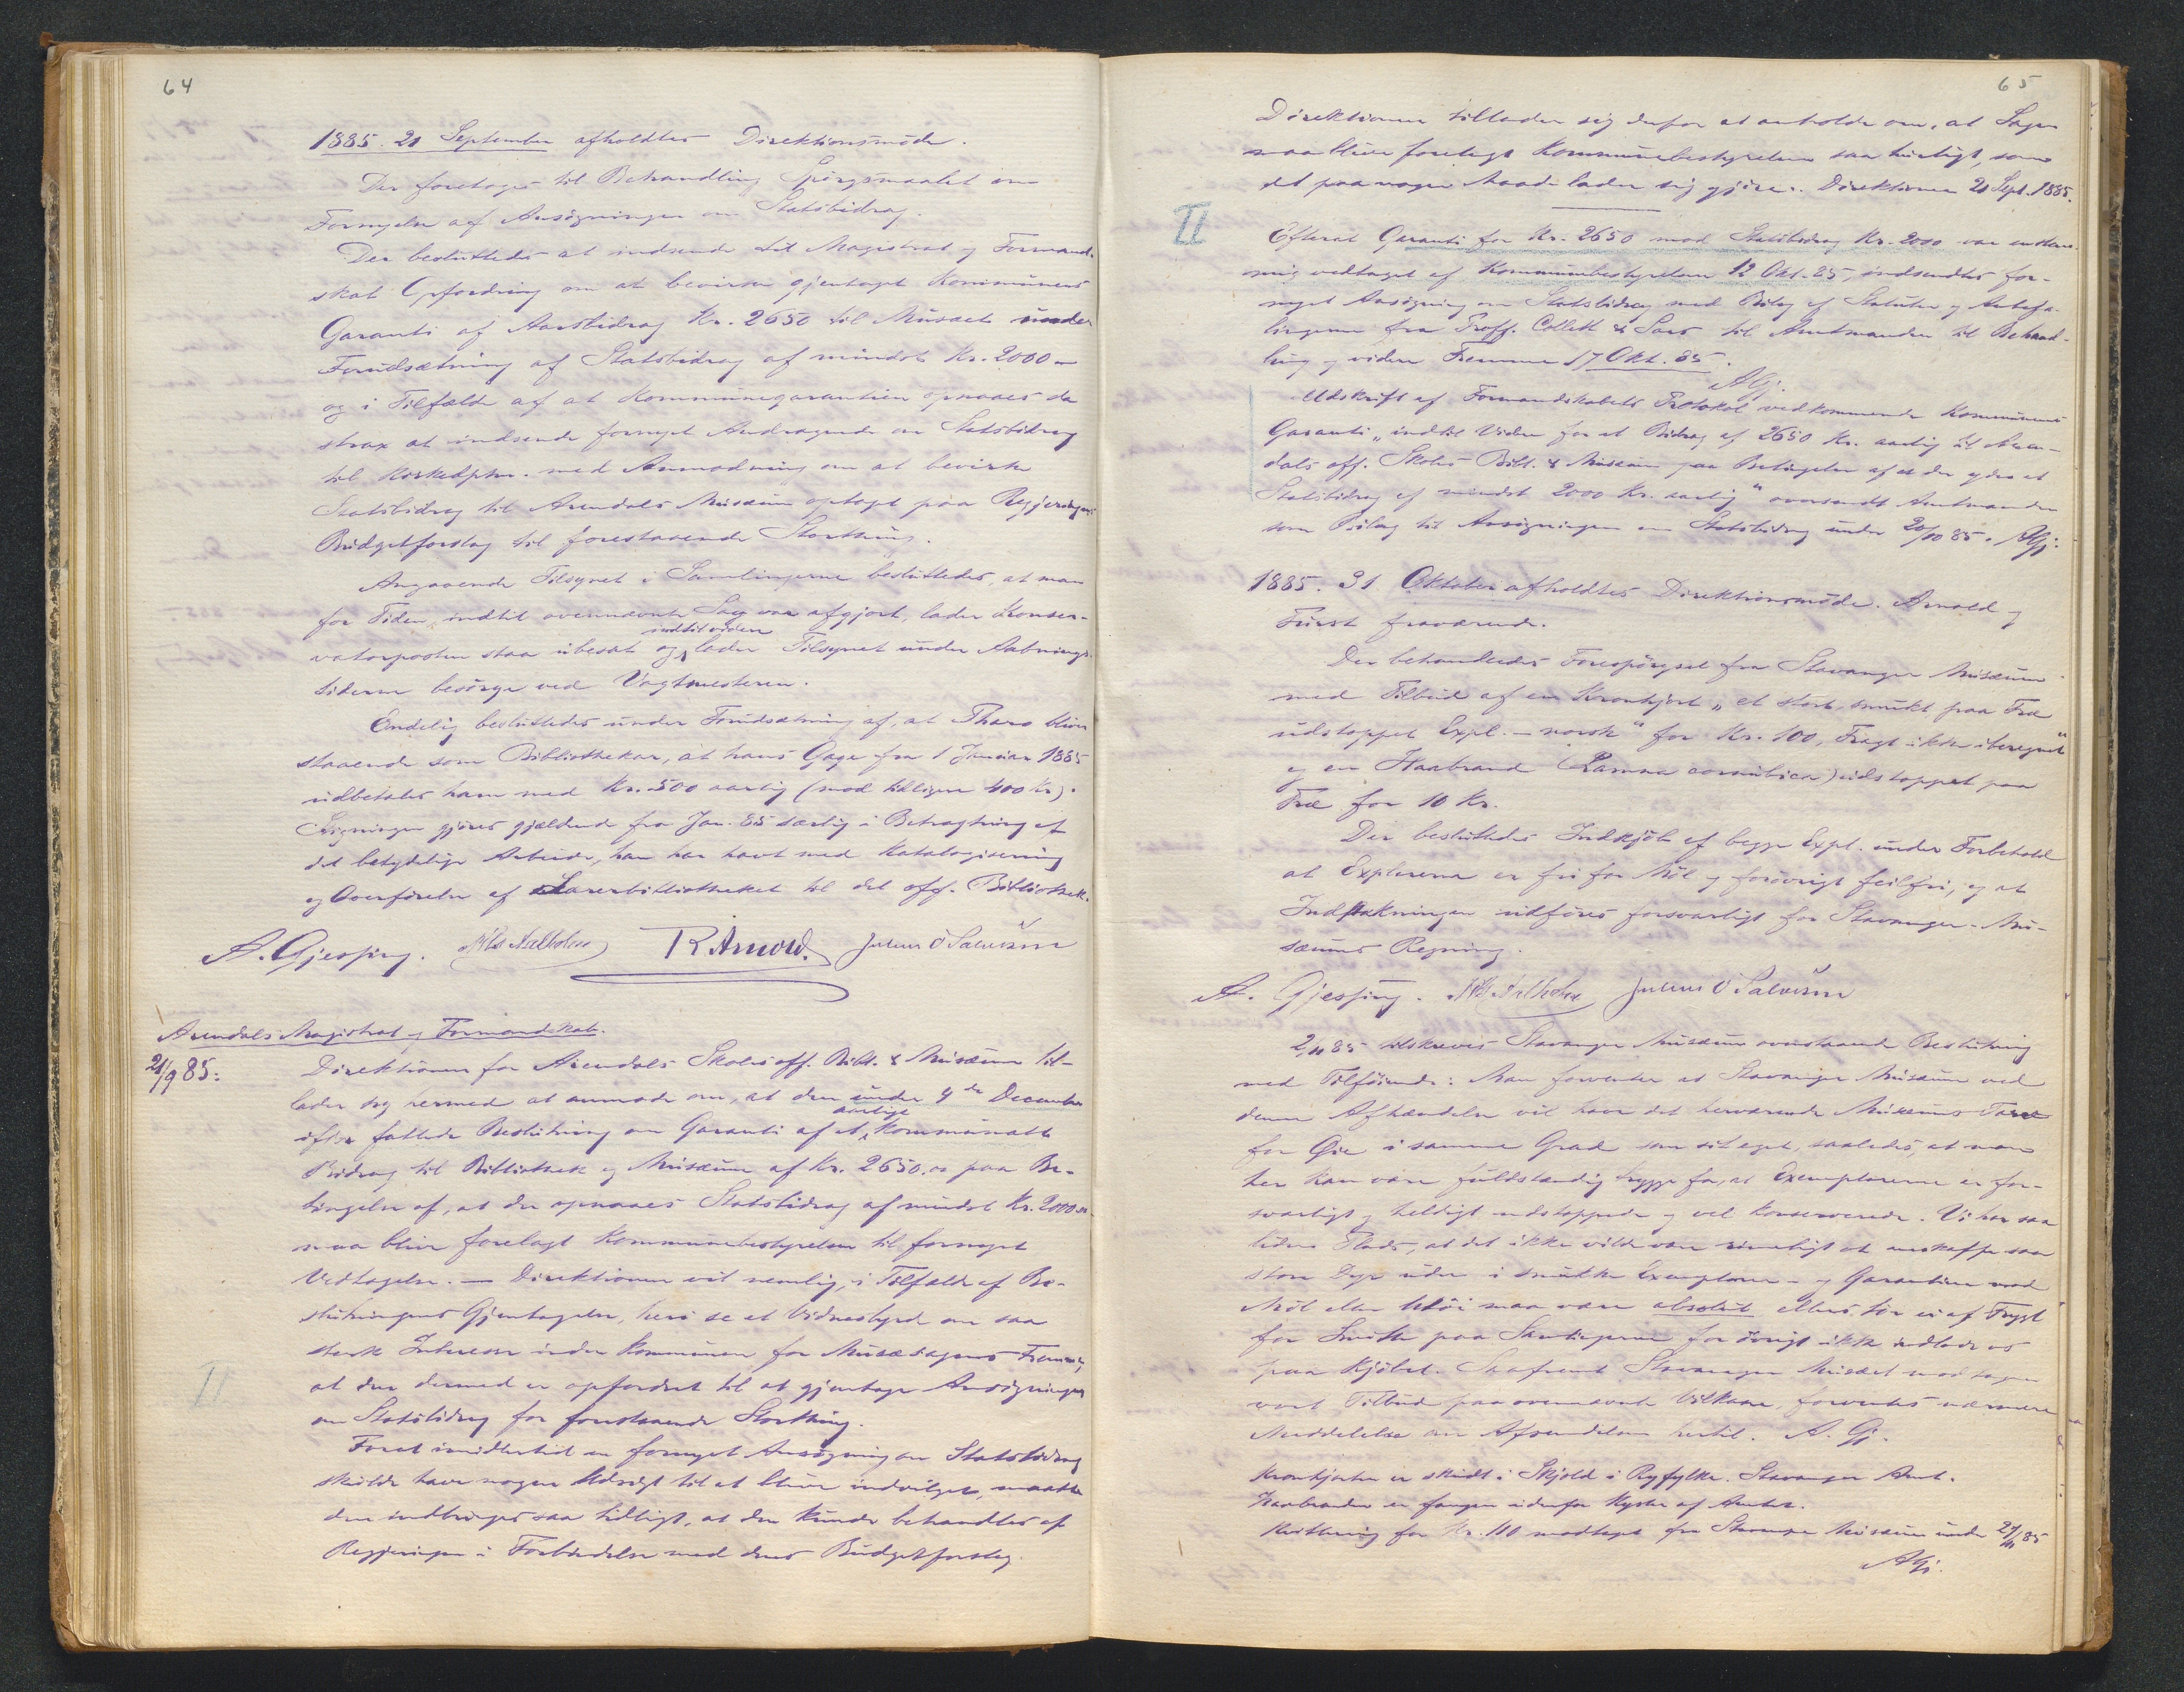 64
1885. 21 September afholdtes Direktionsmøde.
Der foretoges til Behandling Spørgsmaalet om
Fornyelse af Ansøgningen om Statsbidrag.
Der besluttedes at indsende til Magistrat og Formand-
skab Opfordring om at bevirke gjentaget Kommunens
Garanti af Aarsbidrag Kr. 2650 til Musæet under
Forudsætning af Statsbidrag af mindst Kr. 2000 –
og i Tilfælde af at Kommunegarantien opnaaes da
strax at indsende fornyet Andragende om Statsbidrag
til Kirkedptm. med Anmodning om at bevirke
Statsbidrag til Arendals Musæum optaget paa Regjeringens
Budgetforslag til forestaaende Storthing.
Angaaende Tilsynet i Samlingerne besluttedes, at man
for Tiden, indtil ovennævnte Sag var afgjort, lader Konser-
vatorposten staa ubesat og indtil videre lader Tilsynet under Aabnings-
tiderne besørge ved Vagtmesteren.
Endelig besluttedes under Forudsætning af, at Tharo bliver
staaende som Bibliothekar, at hans Gage fra 1 Januar 1885
udbetales ham med Kr. 500 aarlig (mod tidligere 400 Kr).
Øgningen gjøres gjældende fra Jan. 85 særlig i Betragtning af
det betydelige Arbeide, han har havt med Katalogisering
og Overførelse af Læsebibliotheket til det off. Bibliothek.
A. Gjessing. Nils Aalholm R Arnold. Julius O Salvesen
Arendals Magistrat og Formandskab.
21/9 85:
Direktionen for Arendals Skoles off. Bibl. & Musæum til-
lader sig hermed at anmode om, at den under 4de December
ifjor fattede Beslutning om Garanti af et aarligt Kommunalt
Bidrag til Bibliothek og Musæum af Kr. 2650.00 paa Be-
tingelse af, at der opnaaes Statsbidrag af mindst Kr. 2000.00
maa blive forelagt Kommunebestyrelsen til fornyet
Vedtagelse. – Direktionen vil nemlig, i Tilfælde af Be-
slutningens Gjentagelse, heri se et Vidnesbyrd om saa
sterk Interesse inden Kommunen for Musæsagens Fremme,
at den dermed er opfordret til at gjentage Ansøgningen
om Statsbidrag for forestaaende Storthing.
II
Forat imidlertid en fornyet Ansøgning om Statsbidrag
skulde have nogen Udsigt til at blive indvilget, maatte
den indbringes saa tidligt, at den kunde behandles af
Regjeringen i Forbindelse med dens Budgetforslag.
65
Direktionen tillader sig derfor at anholde om, at Sagen
maa blive forelagt Kommunebestyrelsen saa hurtigt, som
det paa nogen Maade lader sig gjøre. Direktionen 21 Sept. 1885.
II
Efterat Garanti for Kr. 2650 mod Statsbidrag Kr. 2000 var enstem-
mig vedtaget af Kommunebestyrelsen 12 Okt. 85, indsendtes for-
nyet Ansøgning om Statsbidrag med Bilag af Statuter og Anbefa-
lingerne fra Proff. Collett & Sars til Amtmanden til Behand-
ling og videre Fremme 17 Okt. 85.
AGj.
Udskrift af Formandskabets Protokol vedkommende Kommunens
Garanti „indtil Videre for et Bidrag af 2650 Kr. aarlig til Aren-
dals off. Skoles Bibl. & Musæum paa Betingelse af at der ydes et
Statsbidrag af mindst 2000 Kr. aarlig“ oversendt Amtmanden
som Bilag til Ansøgningen om Statsbidrag under 20/10 85. AGj.
1885. 31 Oktober afholdtes Direktionsmøde. Arnold og
Fürst fraværende.
Der behandledes Forespørgsel fra Stavanger Musæum
med Tilbud af en Kronhjort „et stort, smukt paa Træ
udstoppet Expl. – norsk“ for Kr. 100, Fragt ikke iberegnet“
og en Haabrand (Lamna cornubica) udstoppet paa
Træ for 10 Kr.
Der besluttedes Indkjøb af begge Expl. under Forbehold
at Explarerne er fri for Møl og forøvrigt feilfri, og at
Indpakningen udføres forsvarligt for Stavanger-Mu-
sæums Regning.
A. Gjessing. Nils Aalholm Julius O Salvesen
2/11 85 tilskreves Stavanger Musæum ovenstaaende Beslutning
med Tilføiende: Man forventer at Stavanger Musæum ved
denne Afhændelse vil have det herværende Musæums Tarv
for Øie i samme Grad som sit eget, saaledes, at man
her kan være fuldstændig trygge for, at Exemplarerne er for-
svarligt og heldigt udstoppede og vel konserverede. Vi har saa
liden Plads, at det ikke vilde være rimeligt at anskaffe saa
store Dyr uden i smukke Exemplarer – og Garantien mod
Møl eller Utøi maa være absolut ellers tør vi af Frygt
for Smitte paa Samlingerne for øvrigt ikke indlade os
paa Kjøbet. Saafremt Stavanger Musæet modtager
vort Tilbud paa ovennævnte Vilkaar, forventes nærmere
Meddelelse om Afsendelsen hertil. A. Gj.
Kronhjorten er skudt i Skjold i Ryfylke. Stavanger Amt.
Haabranden er fangen udenfor Kysten af Amtet.
Kvittering for Kr. 110 modtaget fra Stavanger Musæum under 24/11 85
AGj.